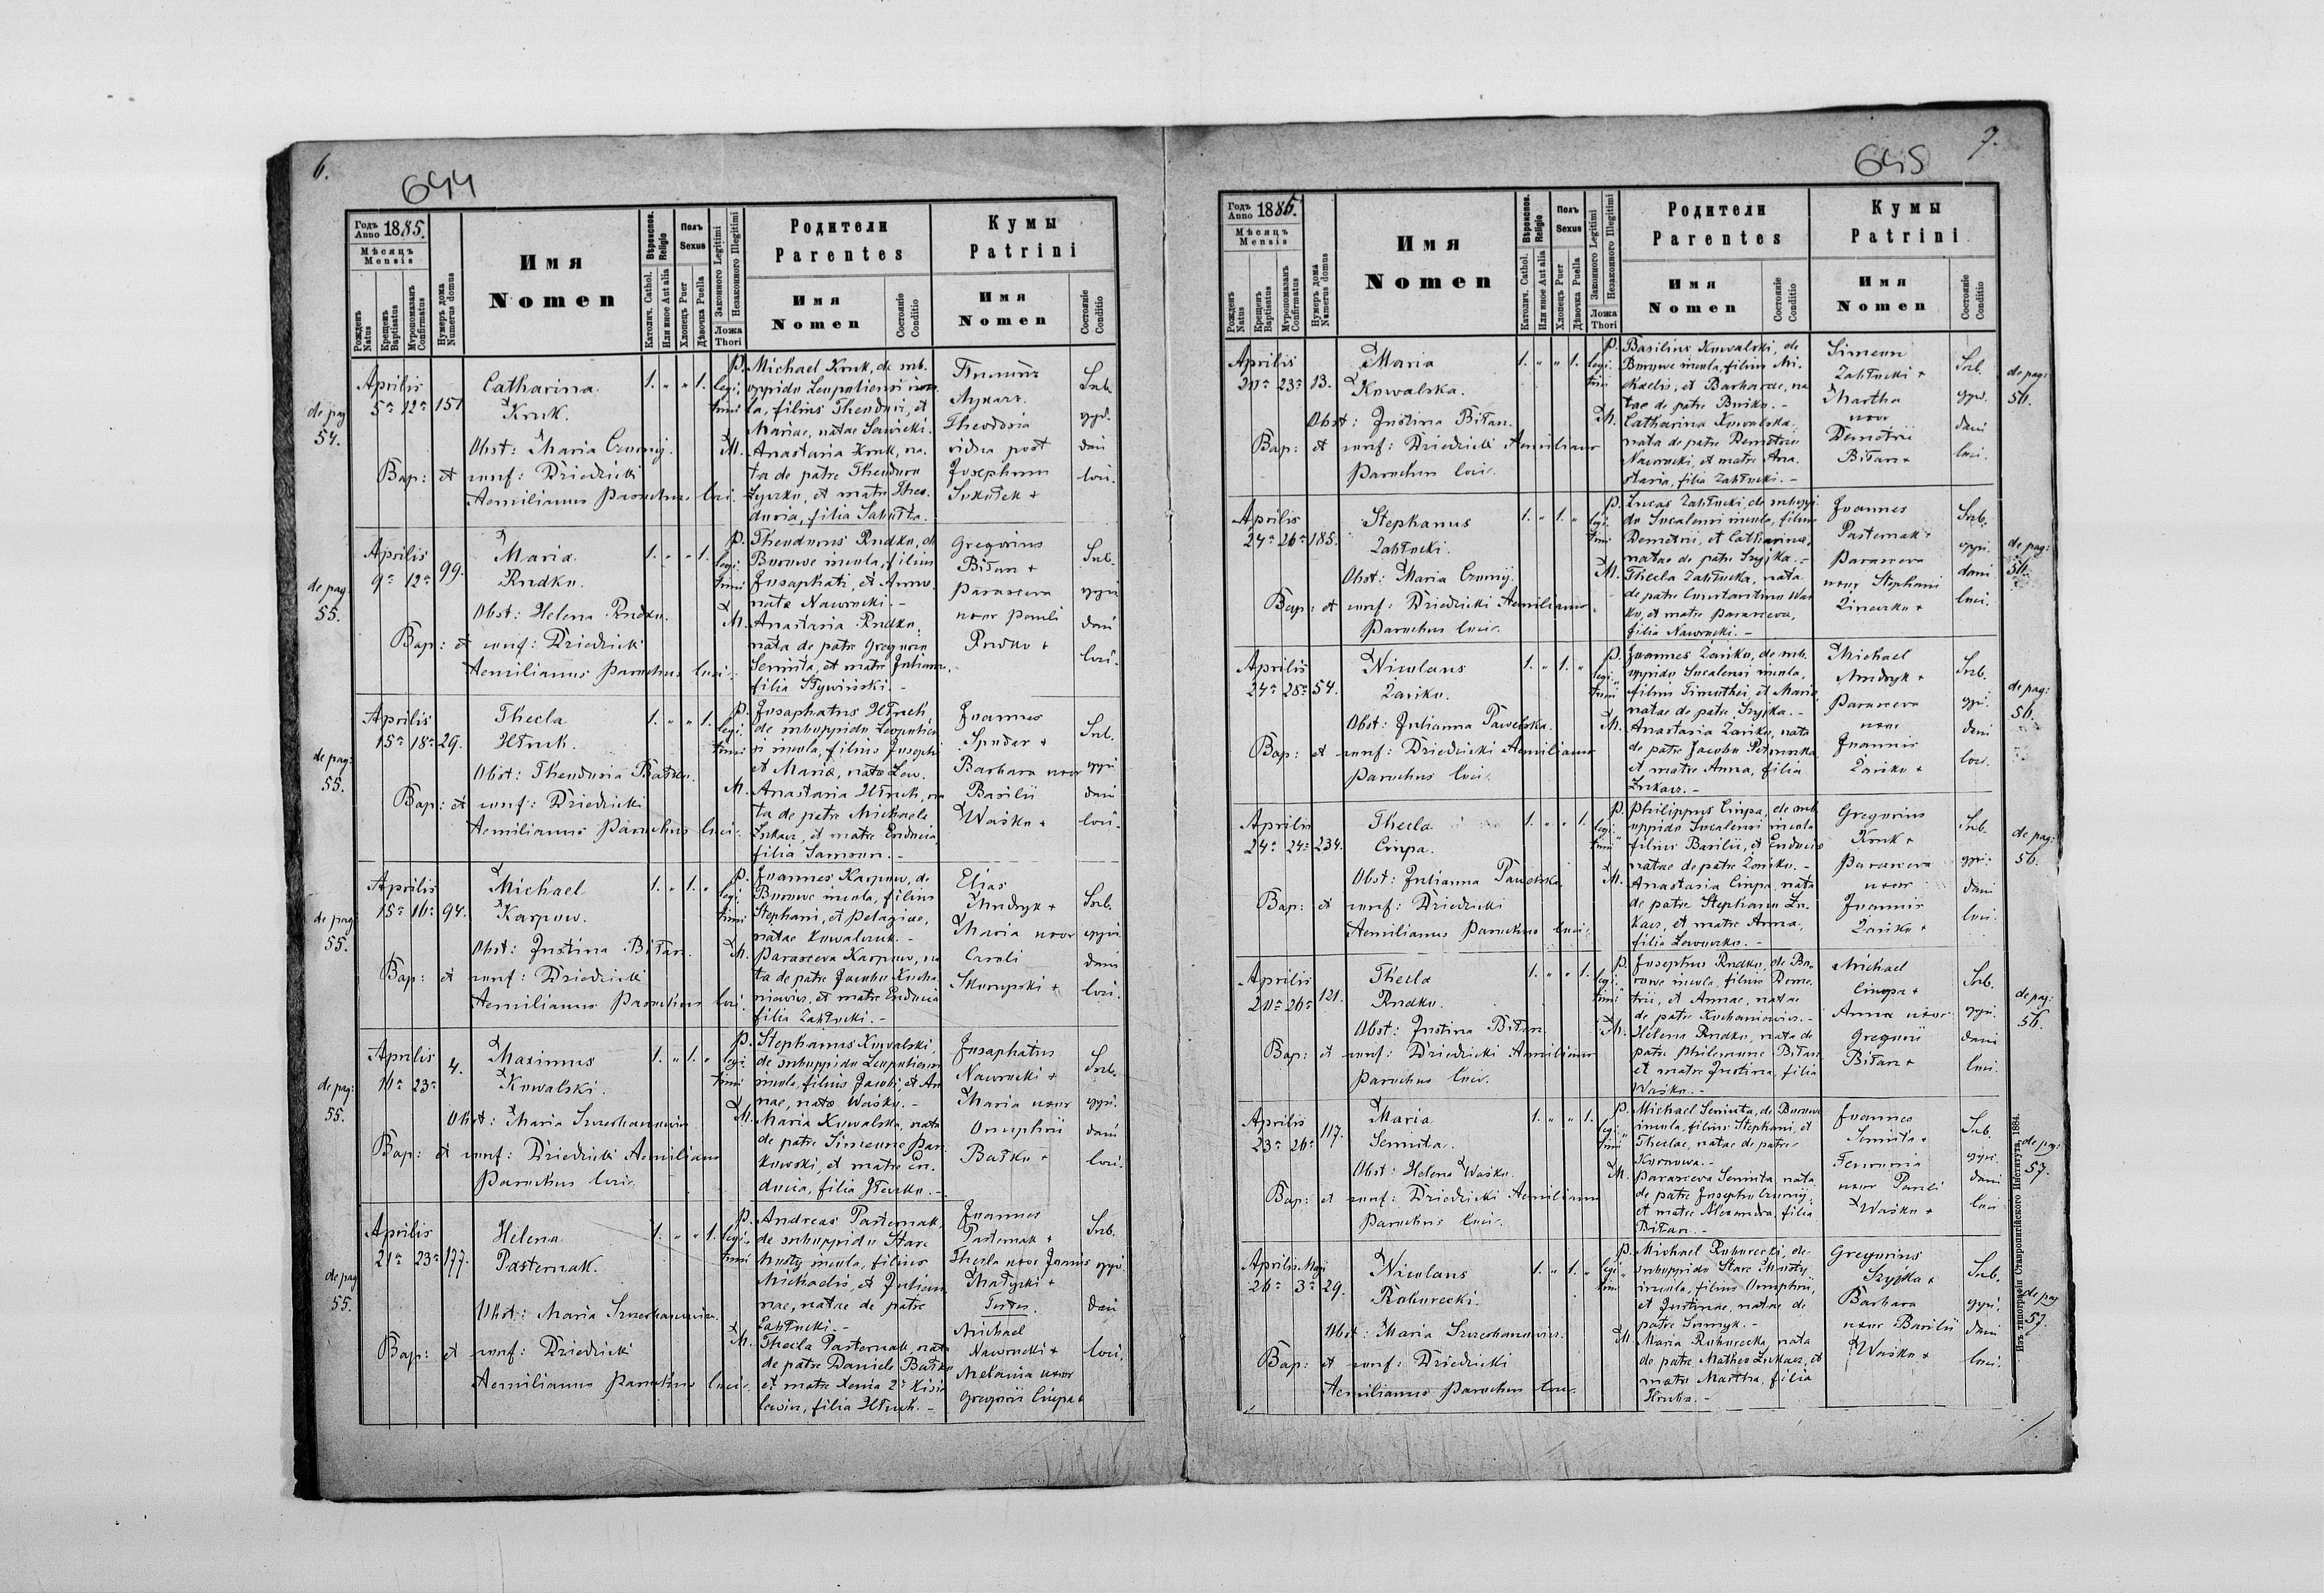 6.
644
Годъ Anno 1885.
Мѣсяцъ Mensis
Рожденъ Natus
Крещенъ Baptisatus
Муропомазанъ Confirmatus
Нумеръ дома Numerus domus
Имя
Nomen
Вѣроиспов. Religio
Католич. Cathol.
Или иное Aut alia
Полъ Sexus
Хлопецъ Puer
Дѣвочка Puella
Законного Legitimi
Незаконного Illegitimi
Ложа Thori
Родители
Parentes
Имя Nomen
Состояніе Conditio
Кумы
Patrini
Имя Nomen
Состояніе Conditio
de pag. 54.
Aprilis
5ª 12ª 151
Catharina
Kruk.
Obst: Maria Czornij.
Bap: et conf: Dziedzicki
Aemilianus Parochus loci.
1. „ „ 1. legi. timi
P. Michael Kruk, de sub.
oppido Leopoliensi inco.
la, filius Theodori, et
Mariae, natae Sawicki.
M. Anastasia Kruk, na.
ta de patre Theodoro
et matre Theo.
dosia, filia Sahułka.
Theodosia
vidua post
Josephum
Sub.
oppi.
dani
loci.
de pag. 55.
Aprilis
9ª 12ª 99.
Maria
Rudko.
Obst: Helena Rudko.
Bap: et conf: Dziedzicki
Aemilianus Parochus loci.
1. „ „ 1. legi. timi
P. Theodorus Rudko, de
Borowe incola, filius
Josaphati, et Annae
natae Nawrocki. -
M. Anastasia Rudko,
nata de patre Gregorio
Semita, et matre Juliana,
filia Slywiński. -
Gregorius
Biłan +
Parasceva
uxor Pauli
Rudko +
Sub.
oppi
dani
loci.
de pag: 55.
Aprilis
15ª 18ª 29.
Thecla
Hłuch.
Obst: Theodosia Batko.
Bap: et conf: Dziedzicki
Aemilianus Parochus loci.
1. „ „ 1. legi. timi
P. Josaphatus Hłuch
de suboppido Leopolien
si incola, filius Josephi
et Mariae, natae Lew.
M. Anastasia Hłuch, na
ta de patre Michaele
Łukacz, et matre Eudocia,
filia Samson. -
Joannes
Barbara uxor
Basilii
Waśko +
Sub.
oppi
dani
loci.
de pag: 55.
Aprilis
15ª 16ª 94.
Michael
Karpow.
Obst: Justina Biłan.
Bap: et conf: Dziedzicki
Aemilianus Parochus loci.
1. „ 1. „ legi. timi
P. Joannes Karpow, de
Borowe incola, filius
Stephani, et Pelagiae,
natae Kowalczuk. -
M. Parasceva Karpow, na
ta de patre Jacobo Kucha
niewicz, et matre Eudocia
filia Zahłucki. -
Elias
Mudryk +
Maria uxor
Caroli
Skorupski +
Sub.
oppi.
dani
loci.
de pag: 55.
Aprilis
16ª 23ª 4.
Maximus
Kowalski.
Obst: Maria Szczechanowicz
Bap: et conf: Dziedzicki Aemilianus
Parochus loci.
1. „ 1. „ legi. timi
P. Stephanus Kowalski,
de suboppido Leopoliensi
incola, filius Jacobi, et An
nae, natae Waśko. -
M. Maria Kowalska, nata
de patre Simeone Pan
kowski, et matre Eu.
docia, filia
Josaphatus
Nawrocki +
Maria uxor
Onuphrii
Batko +
Sub.
oppi.
dani
loci.
de pag 55.
Aprilis
21ª 23ª 177.
Helena
Pasternak.
Obst: Maria Szczechanowicz.
Bap: et conf: Dziedzicki
Aemilianus Parochus loci.
1. „ „ 1. legi. timi
P. Andreas Pasternak,
de suboppido Stare
Mosty incola, filius
Michaelis, et Julian
nae, natae de patre
Zahłucki. -
M. Thecla Pasternak, nata
de patre Daniele Batko
et matre Xenia
filia Hłuch. -
Joannes
Pasternak +
Thecla uxor Joannis
Małycki +
Testes
Michael
Nawrocki +
Melania uxor
Gregorii Ciupa +
Sub.
oppi.
dani
loci.
7.
645
Годъ Anno 1885.
Мѣсяцъ Mensis
Рожденъ Natus
Крещенъ Baptisatus
Муропомазанъ Confirmatus
Нумеръ дома Numerus domus
Имя
Nomen
Вѣроиспов. Religio
Католич. Cathol.
Или иное Aut alia
Полъ Sexus
Хлопецъ Puer
Дѣвочка Puella
Законного Legitimi
Незаконного Illegitimi
Ложа Thori
Родители
Parentes
Имя Nomen
Состояніе Conditio
Кумы
Patrini
Имя Nomen
Состояніе Conditio
Aprilis
20ª 23ª 13.
Maria
Kowalska.
Obst: Justina Biłan.
Bap: et conf: Dziedzicki Aemilianus
Parochus loci.
1. „ „ 1. legi. timi
P. Basilius Kowalski, de
Borowe incola, filius Mi.
chaelis, et Barbarae, na
tae de patre Bojko. -
M. Catharina Kowalska,
nata de patre Demetrio
Nawrocki, et matre Ana.
stasia, filia Zahłucki. -
Simeon
Zahłucki +
Martha
uxor
Demetrii
Biłan +
Sub.
oppi.
dani
loci.
de pag: 56.
Aprilis
24ª 26ª 185.
Stephanus
Zahłucki.
Obst: Maria Czornij.
Bap: et conf: Dziedzicki Aemilianus
Parochus loci.
1. „ 1. „ legi. timi
P. Lucas Zahłucki, de suboppi
do Socalensi incola, filius
Demetrii, et Catharinae,
natae de patre Szyjka. -
M. Thecla Zahłucka, nata
de patre Constantino Waś
ko, et matre Parasceva,
filia Nawrocki. -
Joannes
Pasternak +
Parasceva
uxor Stephani
Sub.
oppi.
dani
loci.
de pag: 56.
Aprilis
24ª 28ª 54.
Nicolaus
Zańko.
Obst: Julianna Pawelska.
Bap: et conf: Dziedzicki Aemilianus
Parochus loci.
1. „ 1. „ legi. timi
P. Joannes Zańko, de sub.
oppido Socalensi incola,
filius Timothei, et Mariae
natae de patre Szyjka. -
M. Anastasia Zańko, nata
de patre Jacobo
et matre Anna, filia
Łukacz. -
Michael
Mudryk +
Parasceva
uxor
Joannis
Zańko +
Sub.
oppi.
dani
loci.
de pag: 56.
Aprilis
24ª 24ª 234.
Thecla
Ciupa.
Obst: Julianna Pawelska
Bap: et conf: Dziedzicki
Aemilianus Parochus loci.
1. „ „ 1. legi. timi
P. Philippus Ciupa, de sub
oppido Socalensi incola
filius Basilii, et Eudociae
natae de patre Zańko. -
M. Anastasia Ciupa, nata
de patre Stephano Łu.
kacz, et matre Anna,
filia
Gregorius
Kruk +
Parasceva
uxor
Joannis
Zańko +
Sub.
oppi:
dani
loci.
de pag: 56.
Aprilis
20ª 26ª 121.
Thecla
Rudko.
Obst: Justina Biłan
Bap: et conf: Dziedzicki Aemilianus
Parochus loci.
1. „ „ 1. legi. timi
P. Josephus Rudko, de Bo.
rowe incola, filius Deme.
trii, et Annae, natae
de patre Kuchaniewicz. -
M. Helena Rudko, nata de
patre Philemone Biłan
et matre Justina, filia
Waśko. -
Michael
Ciupa +
Anna uxor
Gregorii
Biłan +
Sub.
oppi.
dani
loci.
de pag: 56.
Aprilis
23ª 26ª 117.
Maria
Semita.
Obst: Helena Waśko.
Bap: et conf: Dziedzicki Aemilianus
Parochus loci.
1. „ „ 1. legi. timi
P. Michael Semita, de Borowe
incola, filius Stephani, et
Theclae, natae de patre
M. Parasceva Semita, nata
de patre Josepho Czornij,
et matre Alexandra, filia
Biłan. -
Joannes
Semita +
Fevronia
uxor Pauli
Waśko +
Sub.
oppi.
dani
loci.
de pag: 57.
Aprilis. Maji
26ª 3ª 29.
Nicolaus
Rohorecki.
Obst: Maria Szczechanowicz.
Bap: et conf: Dziedzicki
Aemilianus Parochus loci.
1. „ 1. „ legi. timi
P. Michael Rohorecki, de
suboppido Stare Mosty
incola, filius Onuphrii,
et Justinae, natae de
patre
M. Maria Rohorecka, nata
de patre Matheo Łukacz, et
matre Martha, filia
Gregorius
Szyjka +
Barbara
uxor Basilii
Waśko +
Sub.
oppi.
dani
loci.
de pag 57.
Изъ типографіи Ставропигійского Института, 1884.